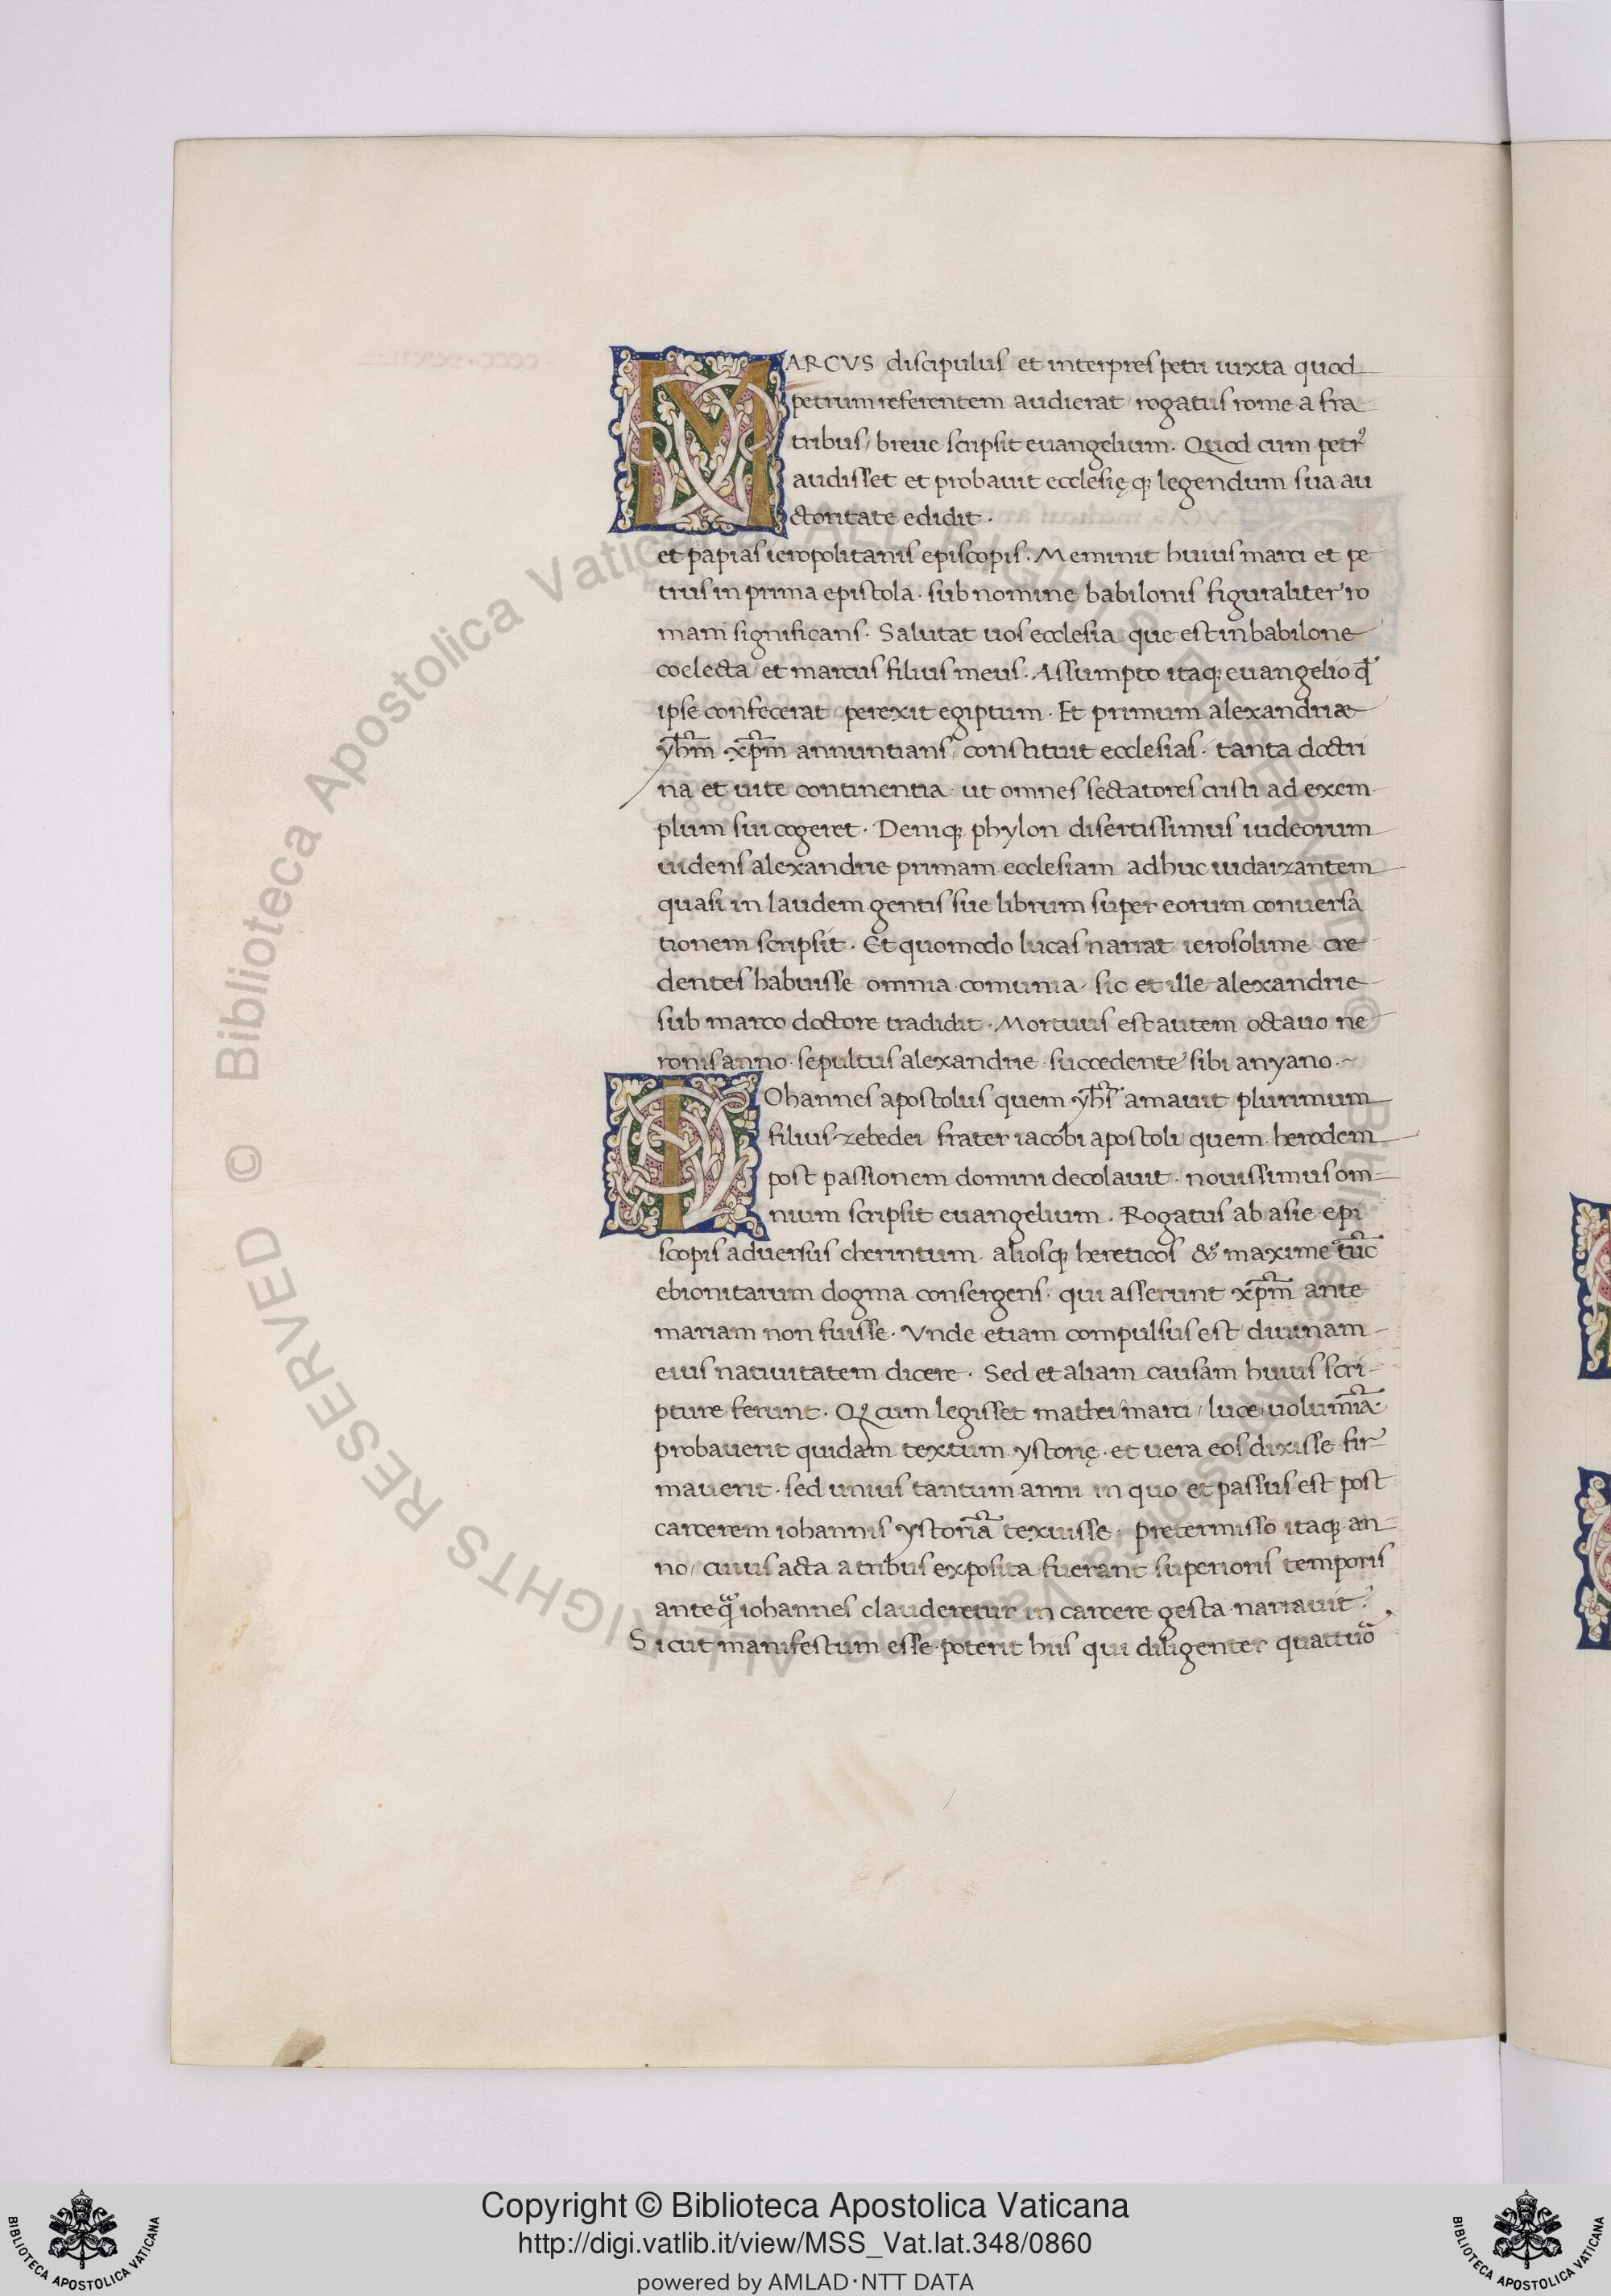 MARCVS discipulus et interpres petri iuxta quod
petrum referentem audierat rogatus rome a fra
tribus / breue scripsit euangelium. Quod cum petrꝰ
audisset et probauit ecclesięqꝫ legendum sua au
ctoritate edidit.
et papias ieropolitanis episcopis. Meminit huius marci et pe
trus in prima epistola. sub nomine babilonis figuraliter ro
mam significans. Salutat uos ecclesia que est in babilone
coelecta et marcus filius meus. Assumpto itaqꝫ euangelio qđ
ipse confecerat perexit egiptum. Et primum alexandriæ
yħm xp̄m annuntians / constituit ecclesias. tanta doctri
na et uite continentia ut omnes sectatores cristi ad exem
plum sui cogeret. Deniqꝫ phylon disertissimus iudeorum
uidens alexandrie primam ecclesiam adhuc iudaizantem
quasi in laudem gentis sue librum super eorum conuersa
tionem scripsit. Et quomodo lucas narrat ierosolime cre
dentes habuisse omnia comunia / sic et ille alexandrie
sub marco doctore tradidit. Mortuus est autem octauo ne
ronis anno sepultus alexandrie succedente sibi anyano.~
IOhannes apostolus quem yħs amauit plurimum
filius zebedei frater iacobi apostoli quem herodem
post passionem domini decolauit. nouissimus om
nium scripsit euangelium. Rogatus ab asie epi
scopis aduersus cherintum aliosqꝫ hereticos & maxime tūc
ebionitarum dogma consergens qui asserunt xp̄m ante
mariam non fuisse. Vnde etiam compulsus est diuinam
eius natiuitatem dicere. Sed et aliam causam huius scri
pture ferunt. Qꝫ cum legisset mathei / marci / luce / uolumīa
probauerit quidam textum ystorię. et uera eos dixisse fir
mauerit. sed unius tantum anni in quo et passus est post
carcerem iohannis ystoriā texuisse. pretermisso itaqꝫ an
no / cuius acta a tribus exposita fuerant superioris temporis
anteq̄ iohannes clauderetur in carcere gesta narrauit.
Sicut manifestum esse poterit his qui diligenter quattuo
© Biblioteca Apostolica Vaticana ALL RIGHTS RESERVED © Biblioteca Apostolica Vaticana ALL RIGHTS RESERVED
BIBLIOTECA APOSTOLICA VATICANA
Copyright © Biblioteca Apostolica Vaticana
http://digi.vatlib.it/view/MSS_Vat.lat.348/0860
powered by AMLAD·NTT DATA
BIBLIOTECA APOSTOLICA VATICANA